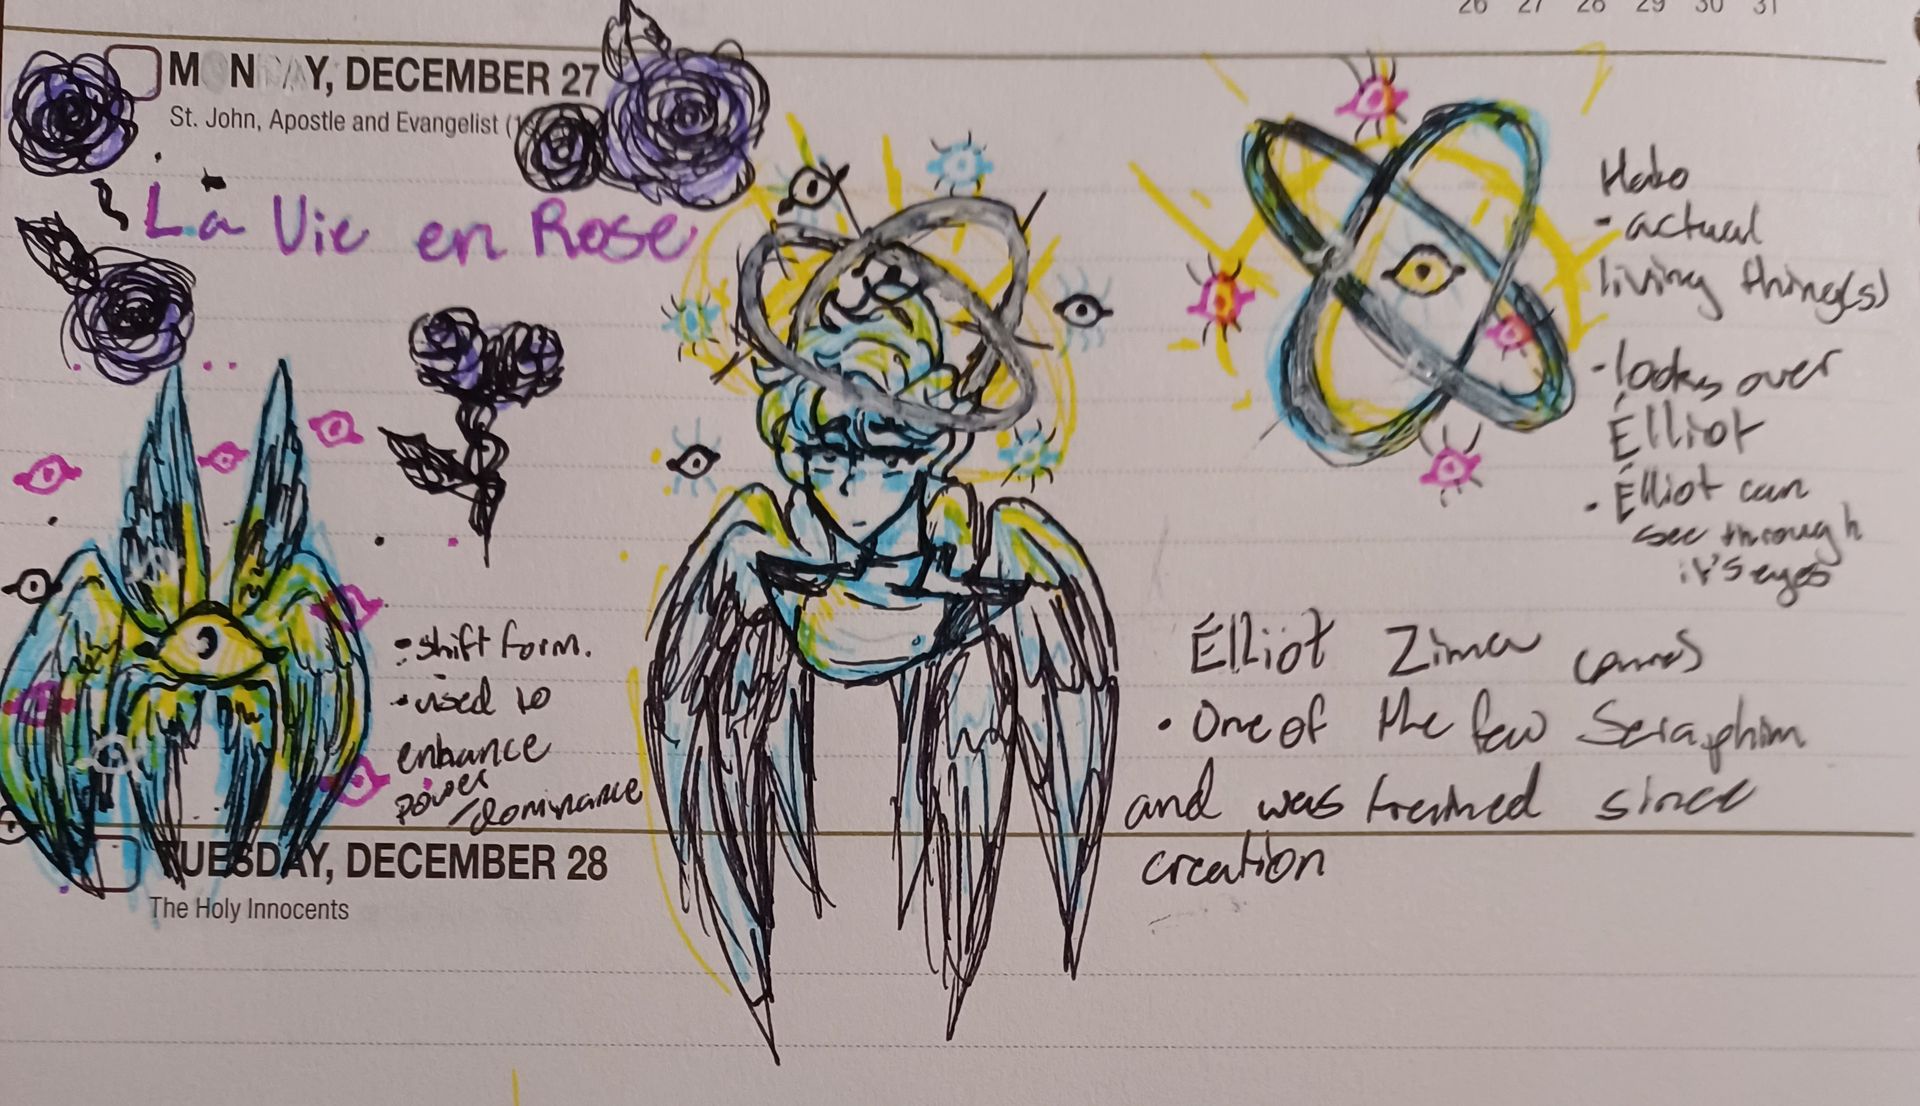 26 27 28 29 30 31
MONDAY, DECEMBER 27
St. John, Apostle and Evangelist
La Vie en Rose
Halo
- actual
living thing(s)
- looks over
Élliot
- Élliot can
see through
it's eyes
• shift form.
• used to
enhance
power
/dominance
Élliot Zima
• One of the few Seraphim
and was trained since
creation
TUESDAY, DECEMBER 28
The Holy Innocents